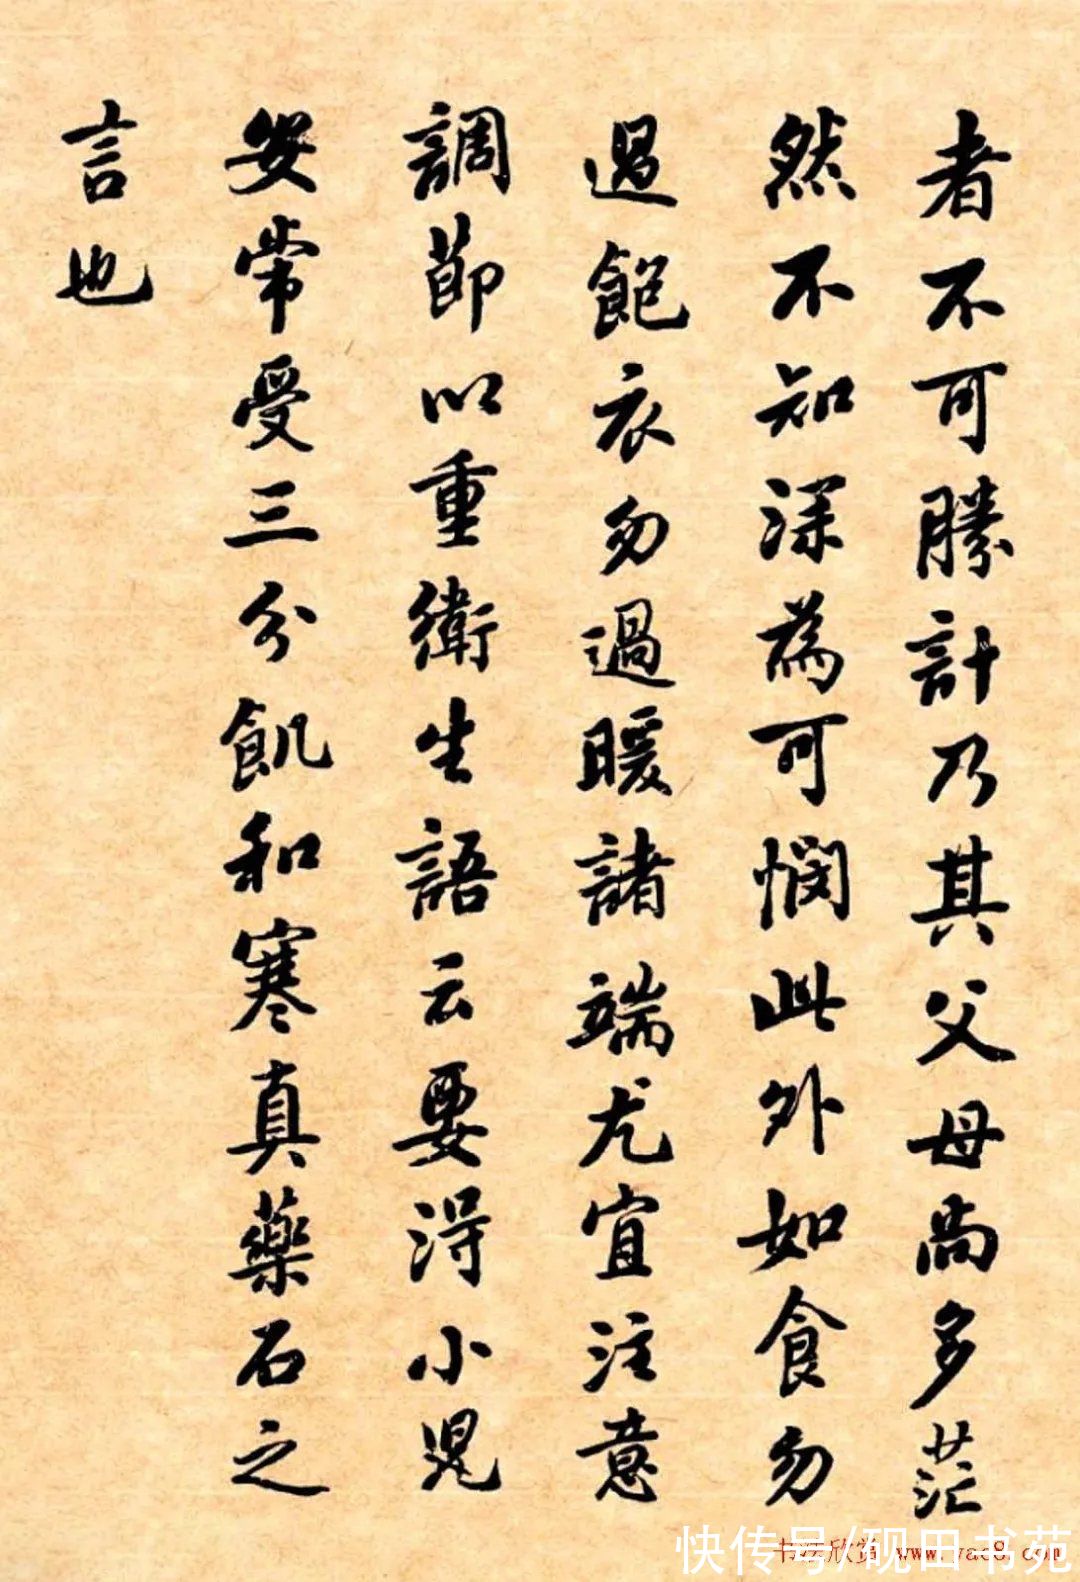 者不可勝計乃其父母尚多茫
然不知深為可憫此外如食勿
過飽衣勿過暖諸端尤宜注意
調節以重衛生語云要得小児
安常受三分飢和寒真藥石之
言也
快传号/砚田书苑
书法欣赏 www.yac8.com